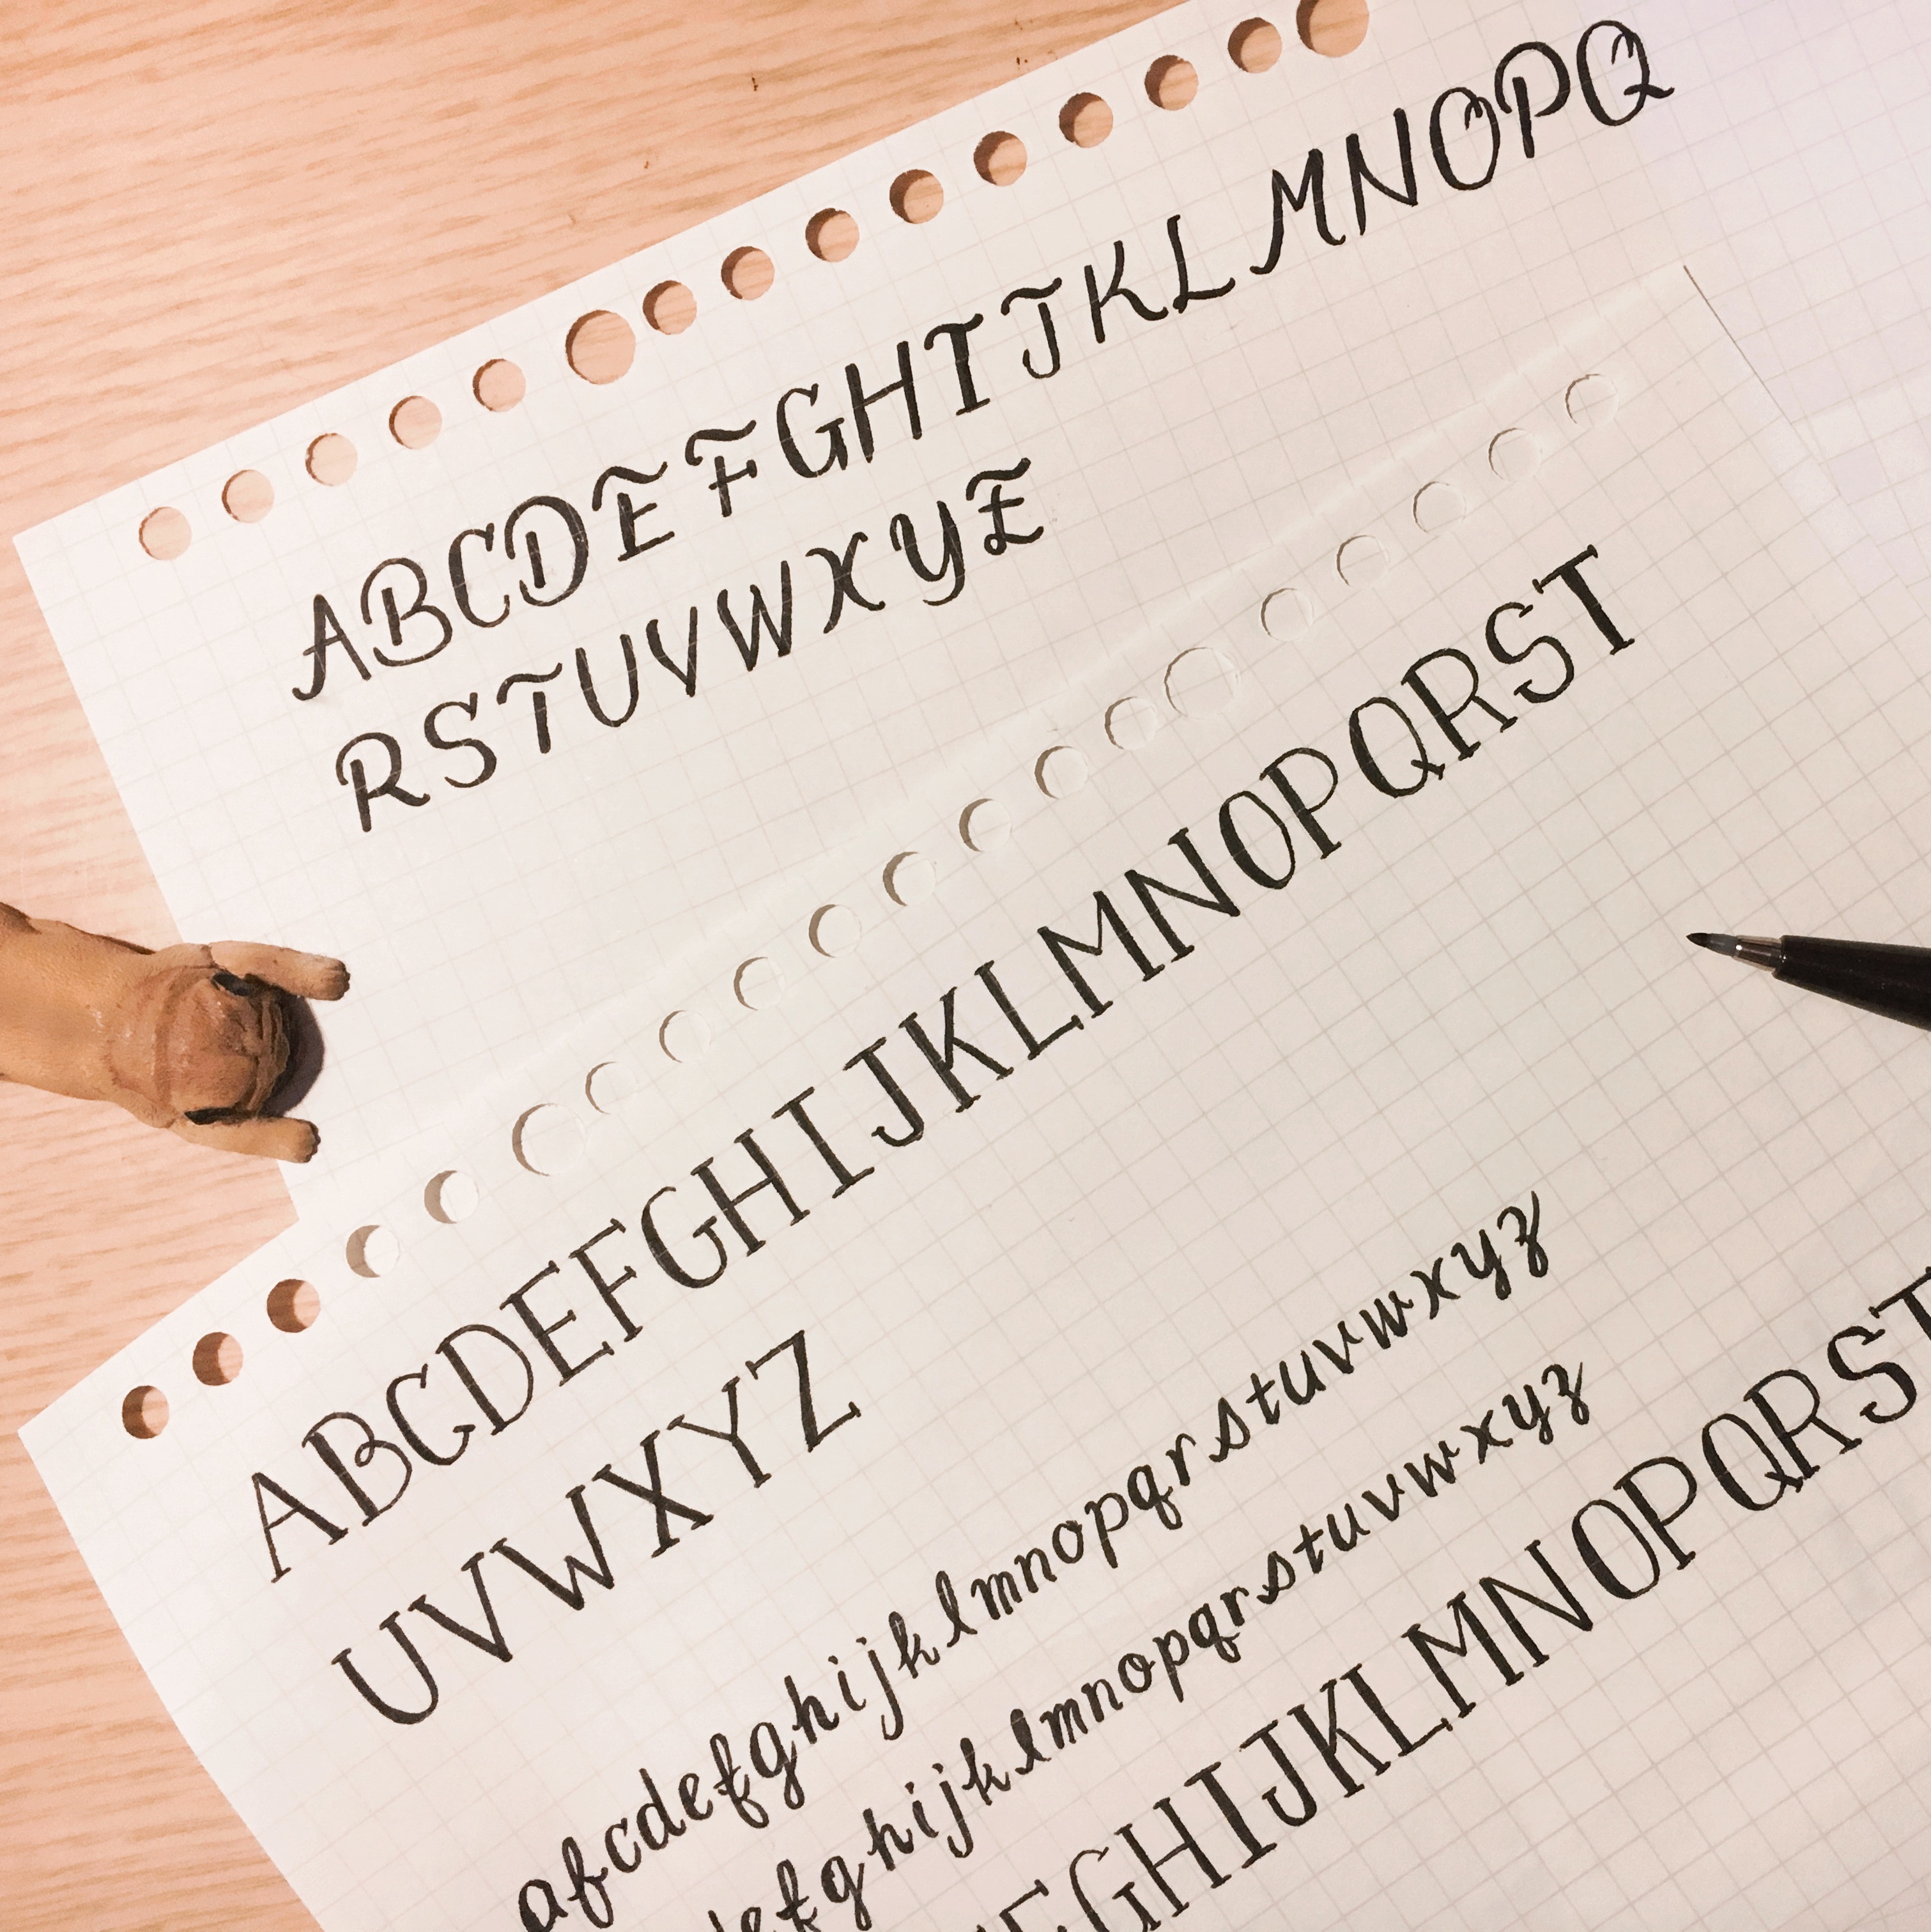 ABCDEFGHIJKLMNOPQ
RSTUVWXYZ
ABCDEFGHIJKLMNOPQRST
UVWXYZ
abcdefghijklmnopqrstuvwxyz
defghijklmnopqrstuvwxyz
EFGHIJKLMNOPQRST